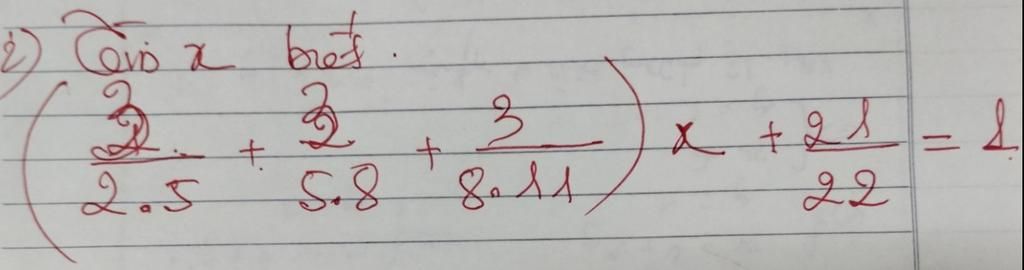 i) Tìm x biết.
( 3/2.5 + 3/5.8 + 3/8.11 ) x + 21/22 = 1